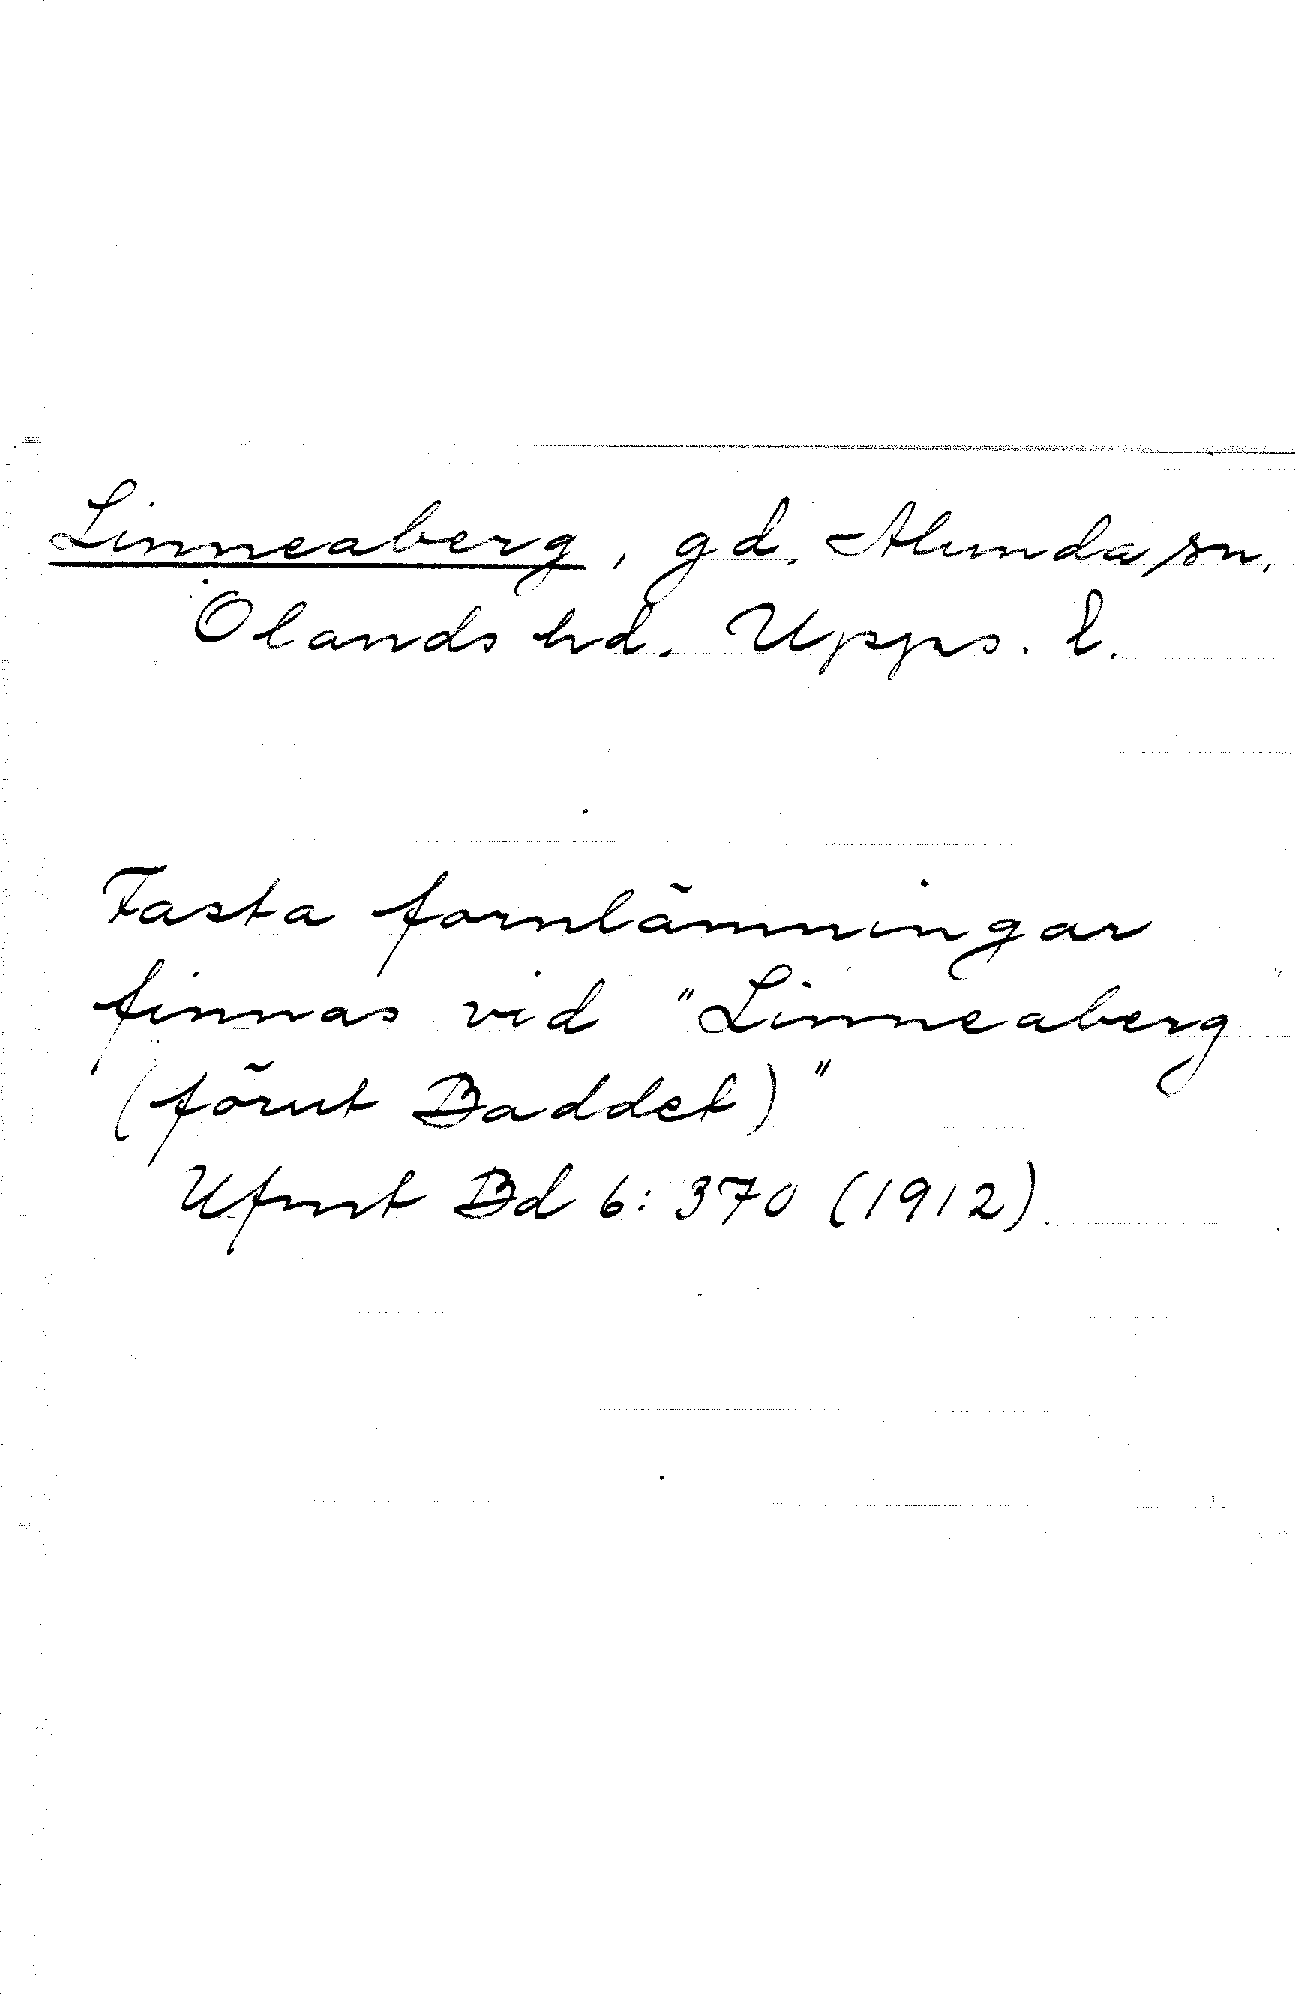 Linneaberg, gd. Alunda sn.
Olands hd. Upps. l.
Fasta fornlämningar
finnas vid "Linneaberg
(förut Baddet)"
Ufmt Bd 6: 370 (1912).